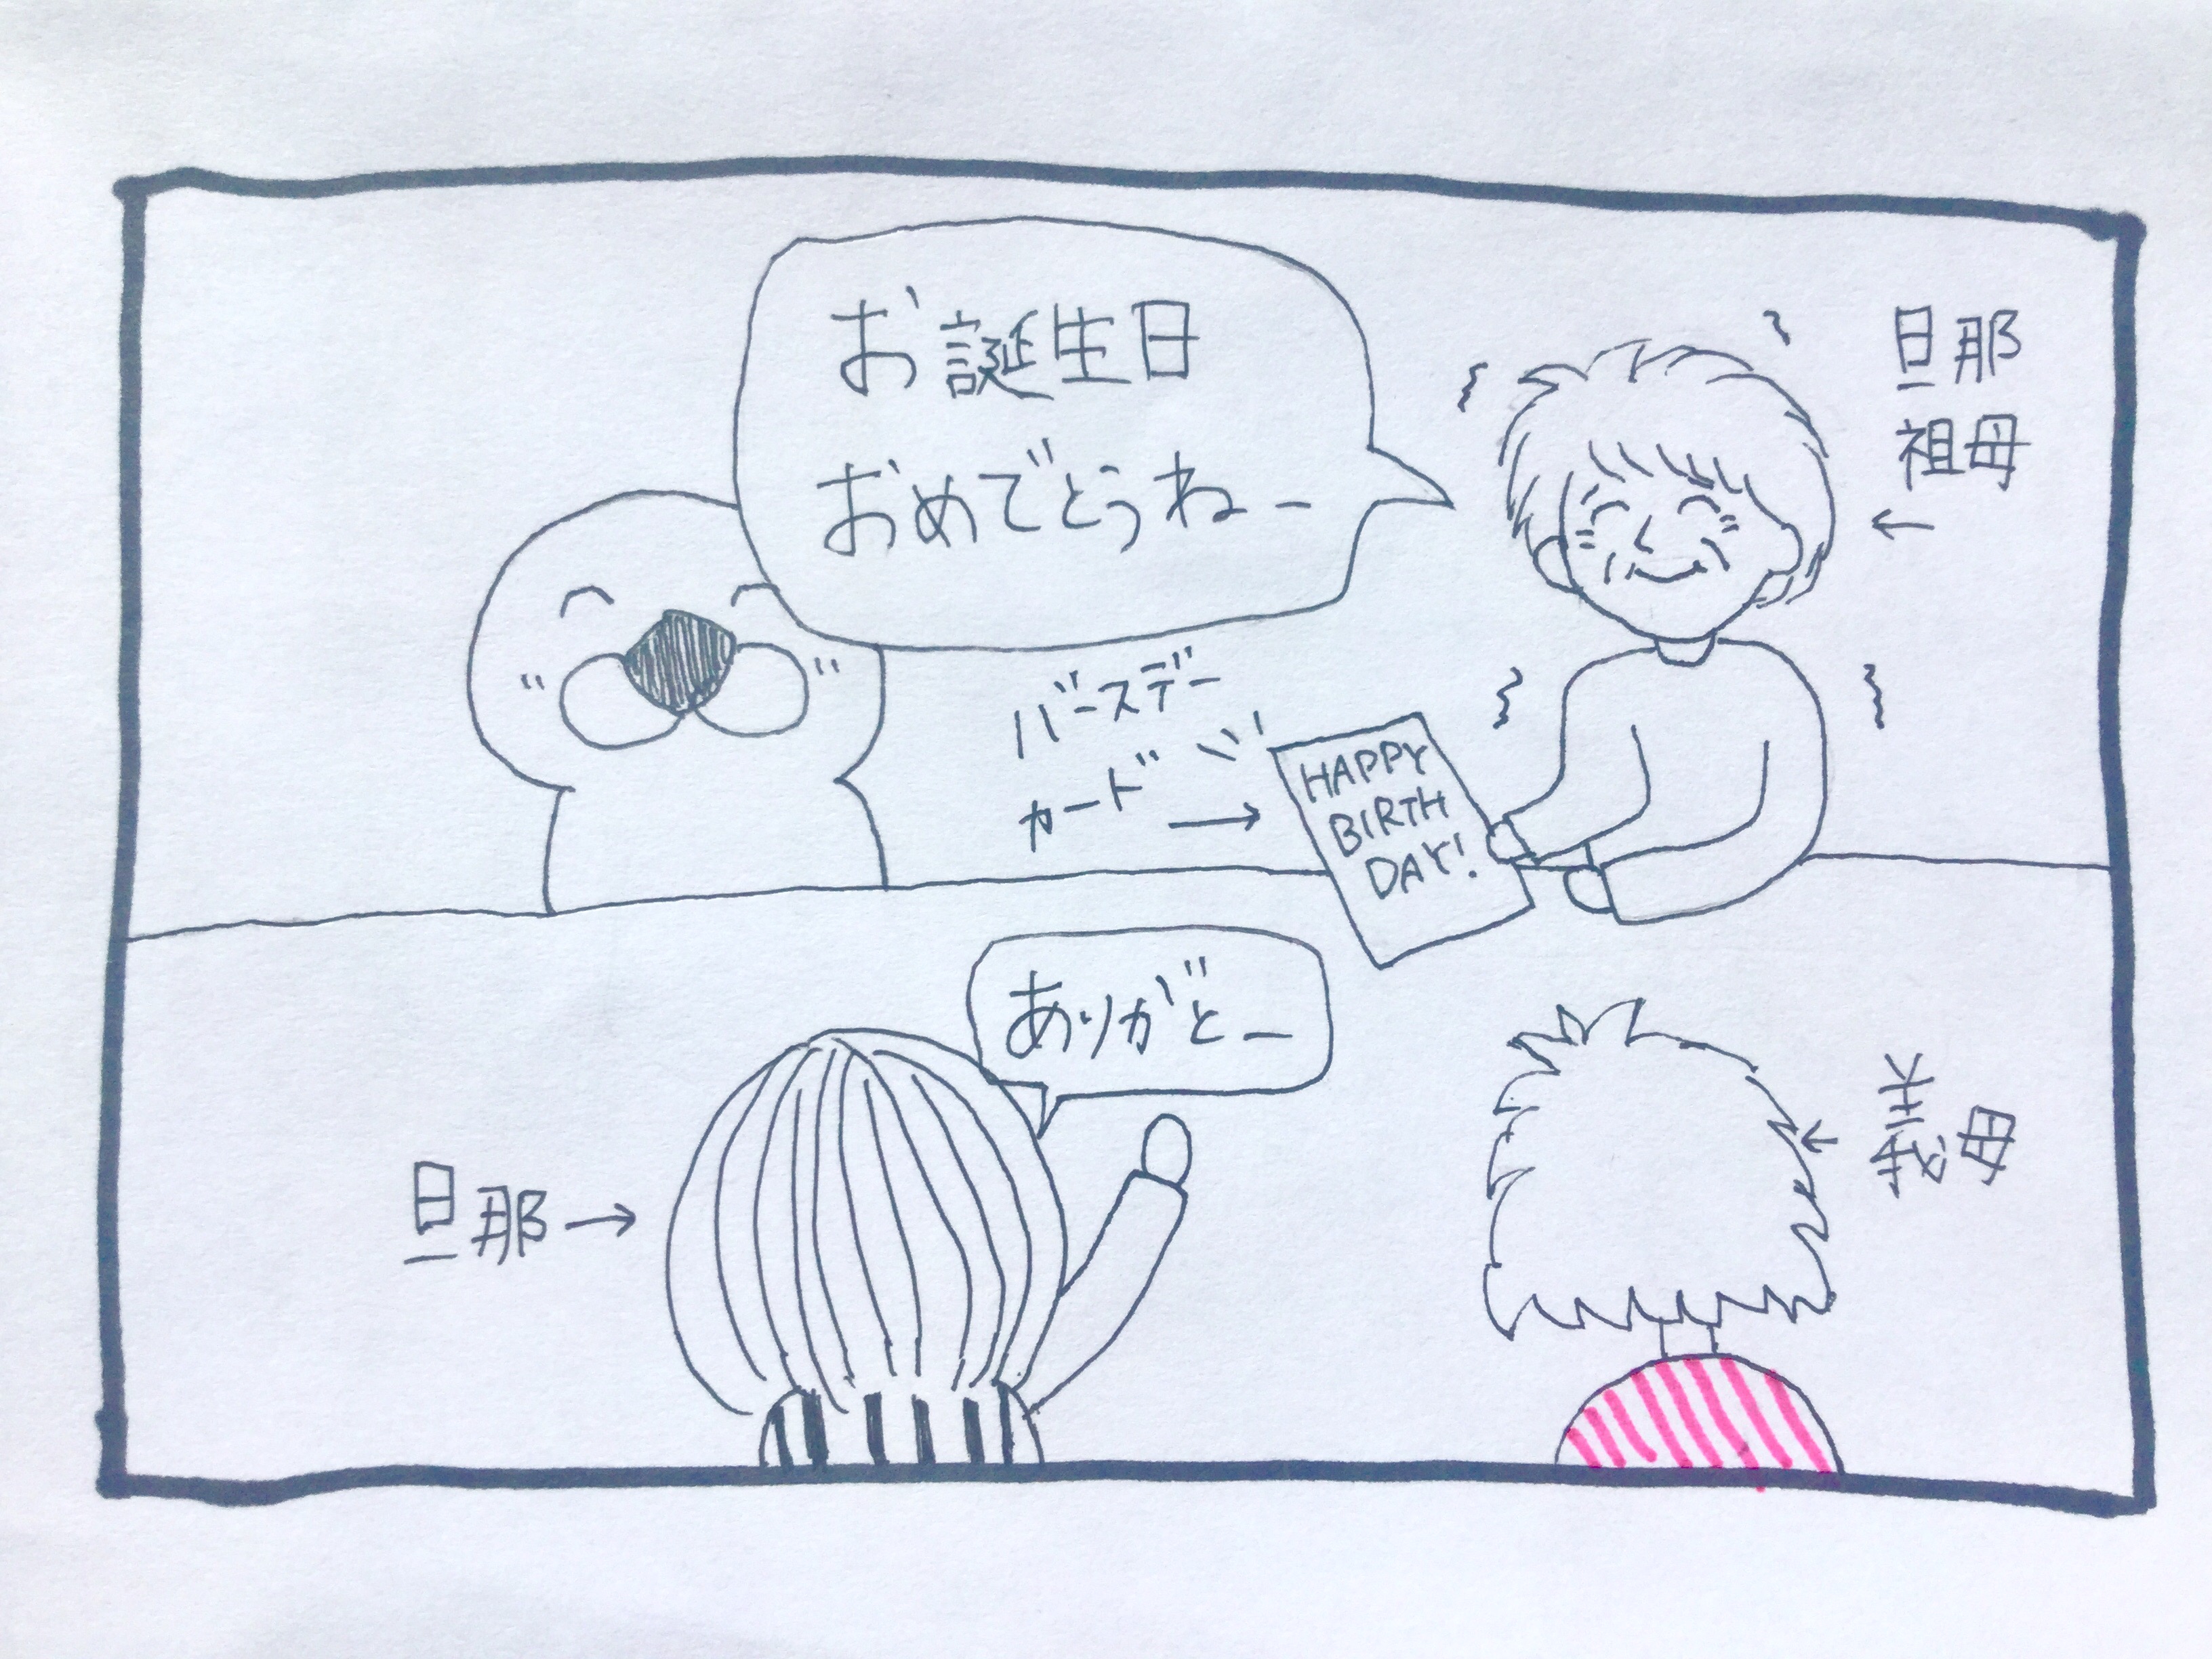 お誕生日
おめでとうねー
旦那
祖母
←
バースデー
カード →
HAPPY
BIRTH
DAY!
ありがとー
旦那→
←義母